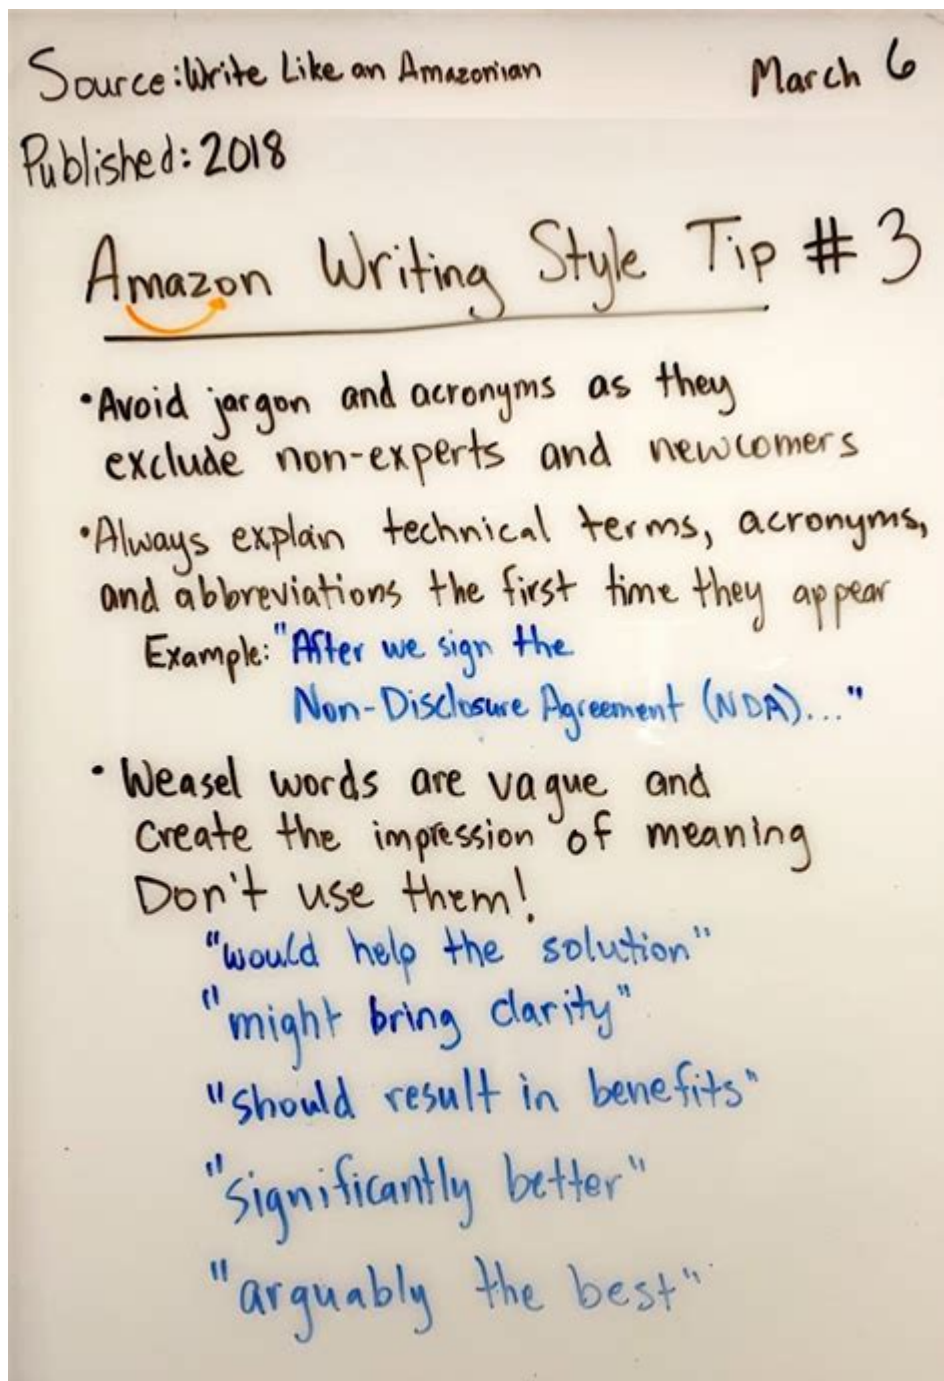 Source: Write Like an Amazonian
March 6
Published: 2018
Amazon Writing Style Tip # 3
• Avoid jargon and acronyms as they
exclude non-experts and newcomers
• Always explain technical terms, acronyms,
and abbreviations the first time they appear
Example: "After we sign the
Non-Disclosure Agreement (NDA)..."
• Weasel words are vague and
create the impression of meaning
Don't use them!
"would help the solution"
"might bring clarity"
"should result in benefits"
"significantly better"
"arguably the best"